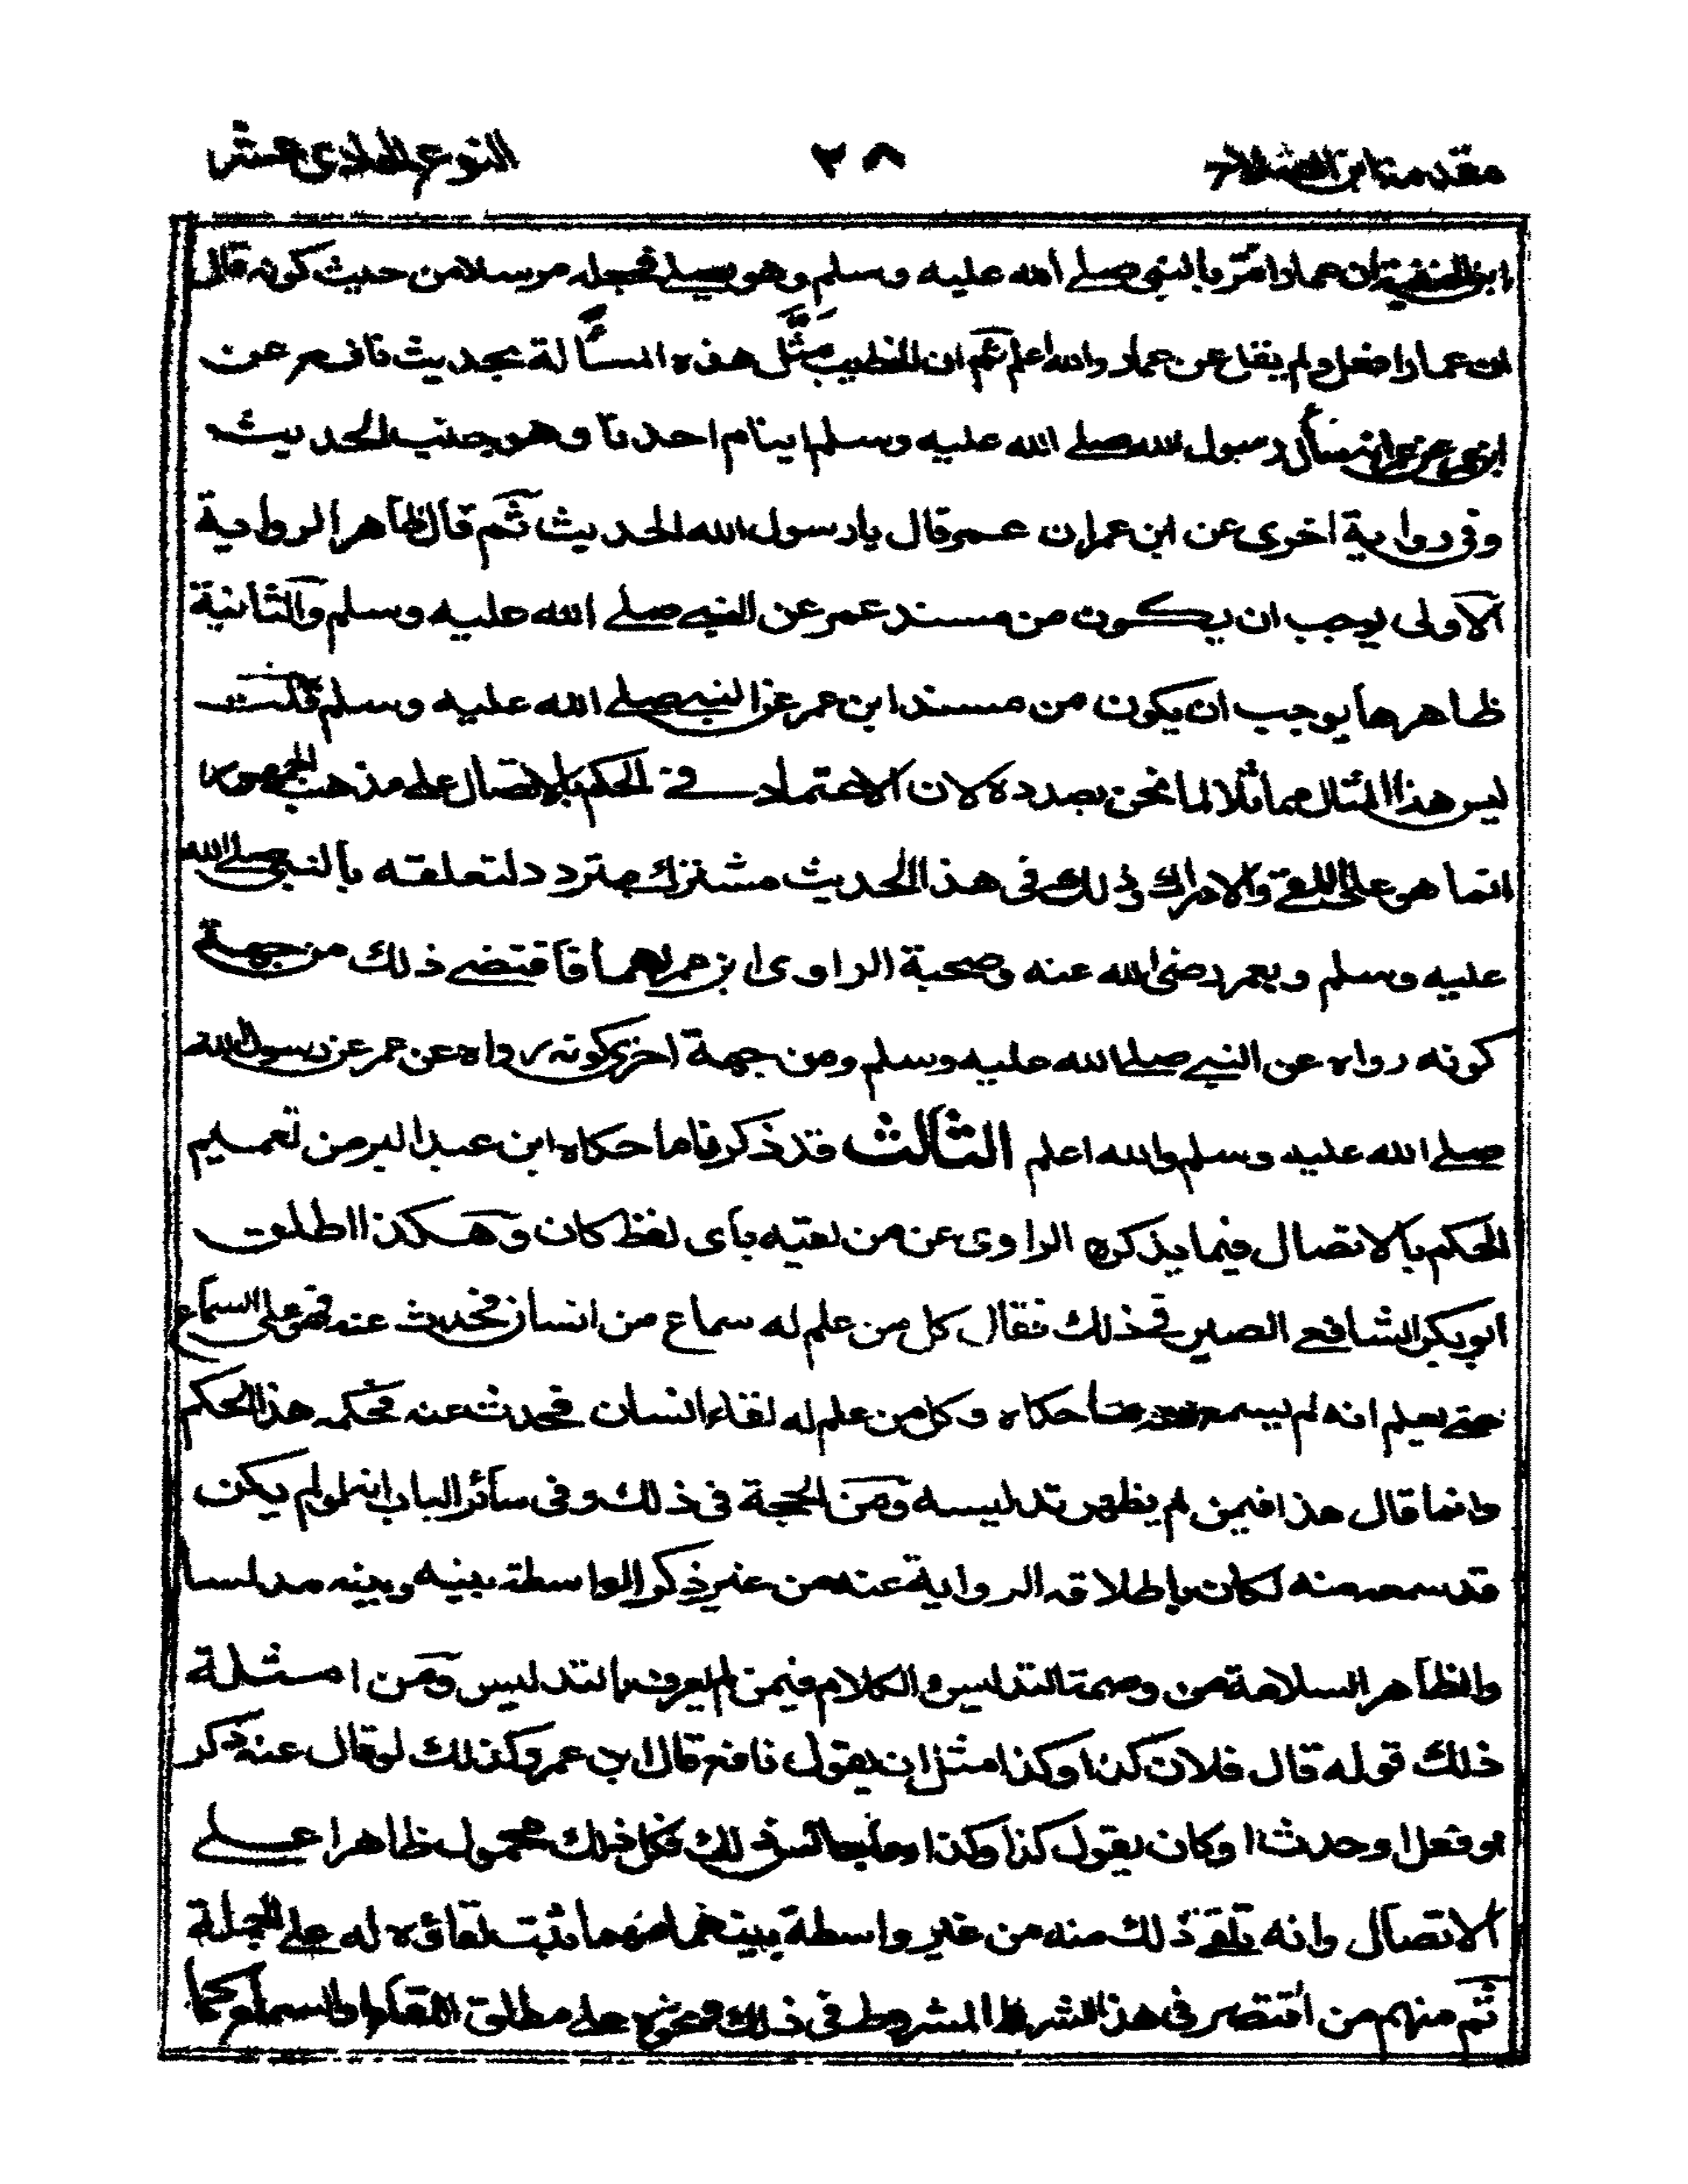 مقدمة ابن الصلاح ٢٨ النوع الحادى عشر
ابن الحنفية ان عمارا مر بالنبى صلے الله عليه وسلم وهو يصلے فجعله مرسلا من حيث كونه قال
ان عمارا فعل ولم يقل عن عمار والله اعلم ثم ان الخطيب مثّل هذه المسألة بحديث نافع عن
ابن عمر عن عمر انه سأل رسول الله صلے الله عليه وسلم اينام احدنا وهو جنب الحديث
وفى رواية اخرى عن ابن عمر ان عمر قال يا رسول الله الحديث ثم قال ظاهر الرواية
الاولى يوجب ان يكون من مسند عمر عن النبے صلے الله عليه وسلم والثانية
ظاهرها يوجب ان يكون من مسند ابن عمر عن النبے صلے الله عليه وسلم قلت
ليس هذا المثال مماثلا لما نحن بصدده لان الاعتماد فے الحكم بالاتصال على مذهب الجمهور
انما هو على اللقے والادراك وذلك فى هذا الحديث مشترك متردد لتعلقه بالنبى صلے الله
عليه وسلم وبعمر رضى الله عنه وصحبة الراوى ابن عمر لهما فاقتضے ذلك من جهة
كونه رواه عن النبے صلے الله عليه وسلم ومن جهة اخرى كونه رواه عن عمر عن رسول الله
صلے الله عليه وسلم والله اعلم الثالث قد ذكرنا ما حكاه ابن عبد البر من تعميم
الحكم بالاتصال فيما يذكره الراوى عن من لقيه باى لفظ كان وهكذا اطلق
ابو بكر الشافعے الصيرفے ذلك فقال كل من علم له سماع من انسان فحدث عنه فهو على السماع
حتے يعلم انه لم يسمع منه ما حكاه وكل من علم له لقاء انسان فحدث عنه فحكمه هذا الحكم
وانما قال هذا فيمن لم يظهر تدليسه ومن الحجة فى ذلك وفى سائر الباب انه لو لم يكن
قد سمعه منه لكان باطلاقه الرواية عنه من غير ذكر الواسطة بينه وبينه مدلسا
والظاهر السلامة من وصمة التدليس والكلام فيمن لم يعرف بالتدليس ومن امثلة
ذلك قوله قال فلان كذا وكذا مثل ان يقول نافع قال ابن عمر وكذلك لو قال عنه ذكر
او فعل او حدث او كان يقول كذا وكذا وما جانس ذلك فكل ذلك محمول ظاهرا علے
الاتصال وانه تلقے ذلك منه من غير واسطة بينهما مهما ثبت لقاؤه له علے الجملة
ثم منهم من اقتصر فى هذا الشرط المشروط فى ذلك ونحوه علے مطلق اللقاء او السماع كما